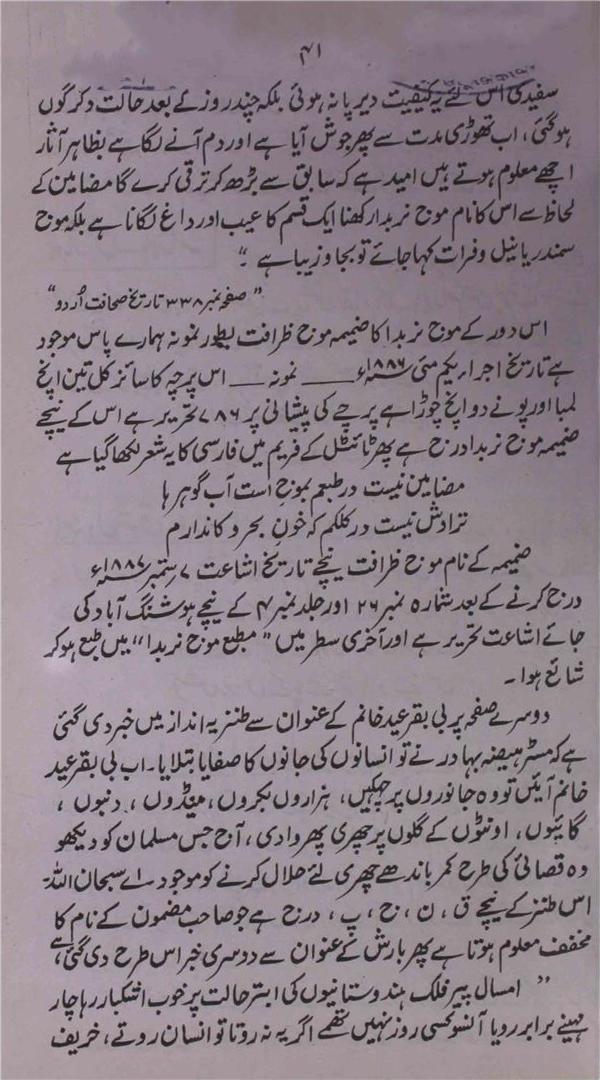 ۴۱
سفیدی اس لئے یہ کیفیت دیرپا نہ ہوئی بلکہ چند روز کے بعد حالت دگرگوں
ہوگئی، اب تھوڑی مدت سے پھر جوش آیا ہے اور دم آنے لگا ہے بظاہر آثار
اچھے معلوم ہوتے ہیں امید ہے کہ سابق سے بڑھ کر ترقی کرے گا مضامین کے
لحاظ سے اس کا نام موج نربدا رکھنا ایک قسم کا عیب اور داغ لگانا ہے بلکہ موج
سمندر یا نیل و فرات کہا جائے تو بجا و زیبا ہے۔"
"صفحہ نمبر ۳۳۸ تاریخ صحافت اُردو"
اس دور کے موج نربدا کا ضمیمہ موج ظرافت بطور نمونہ ہمارے پاس موجود
ہے تاریخ اجرا یکم مئی ۱۸۸۶ء ــــ نمونہ ــــ اس پرچہ کا سائز کل تین انچ
لمبا اور پونے دو انچ چوڑا ہے پرچے کی پیشانی پر ۷۸۶ تحریر ہے اس کے نیچے
ضمیمہ موج نربدا درج ہے پھر ٹائٹل کے فریم میں فارسی کا یہ شعر لکھا گیا ہے
مضامین نیست در طبعم بموج است آب گوہرہا
تراوش نیست در کلکم کہ خونِ بحر و کاں دارم
ضمیمہ کے نام موج ظرافت نیچے تاریخ اشاعت ۷ ستمبر ۱۸۸۷ء
درج کرنے کے بعد شمارہ نمبر ۲۶ اور جلد نمبر ۴ کے نیچے ہوشنگ آباد کی
جائے اشاعت تحریر ہے اور آخری سطر میں "مطبع موج نربدا" میں طبع ہو کر
شائع ہوا۔
دوسرے صفحہ پر بی بقرعید خانم کے عنوان سے طنزیہ انداز میں خبر دی گئی
ہے کہ مسٹر ہیضہ بہادر نے تو انسانوں کی جانوں کا صفایا بتلایا۔ اب بی بقرعید
خانم آئیں تو وہ جانوروں پر جھپکیں، ہزاروں بکروں، مینڈوں، دنبوں،
گائیوں، اونٹوں کے گلوں پر چھری پھروادی، آج جس مسلمان کو دیکھو
وہ قصائی کی طرح کمر باندھے چھری لئے حلال کرنے کو موجود۔ اے سبحان اللہ۔
اس طنز کے نیچے ق، ن، ح، پ، درج ہے جو صاحب مضمون کے نام کا
مخفف معلوم ہوتا ہے پھر بارش کے عنوان سے دوسری خبر اس طرح دی گئی ہے
"امسال پیر فلک ہندوستانیوں کی ابتر حالت پر خوب اشکبار رہا چار
مہینے برابر رویا آنسو کسی روز نہیں تھمے اگر یہ نہ روتا تو انسان روتے، خریف